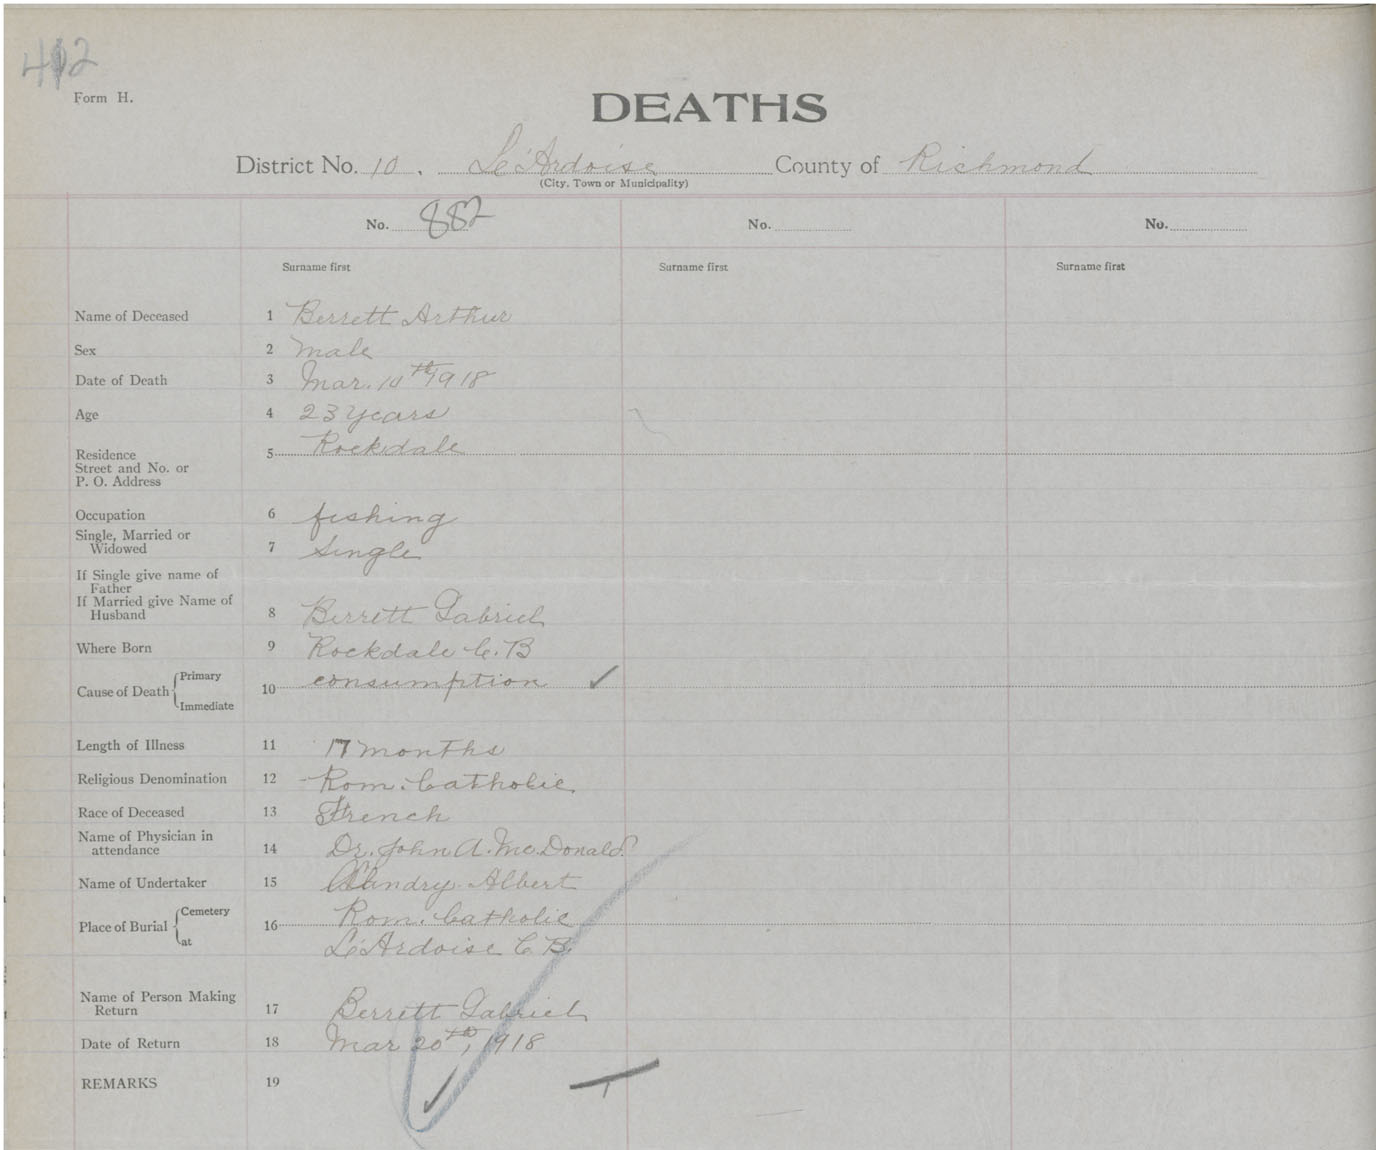 412
Form H.
DEATHS
District No. 10. Le'Ardoise County of Richmond
(City, Town or Municipality)
No. 882 No. No.
Surname first Surname first Surname first
Name of Deceased 1 Berrett Arthur
Sex 2 male
Date of Death 3 Mar. 10th 1918
Age 4 23 years
Residence 5 Rockdale
Street and No. or
P. O. Address
Occupation 6 fishing
Single, Married or
Widowed 7 Single
If Single give name of
Father
If Married give Name of
Husband 8 Berrett Gabriel
Where Born 9 Rockdale C. B
Cause of Death Primary 10 consumption ✓
Immediate
Length of Illness 11 17 months
Religious Denomination 12 Rom. Catholic
Race of Deceased 13 French
Name of Physician in
attendance 14 Dr. John A. McDonald
Name of Undertaker 15 Albert
Place of Burial Cemetery 16 Rom. Catholic
at Le'Ardoise C B.
Name of Person Making
Return 17 Berrett Gabriel
Date of Return 18 Mar 20th, 1918
REMARKS 19